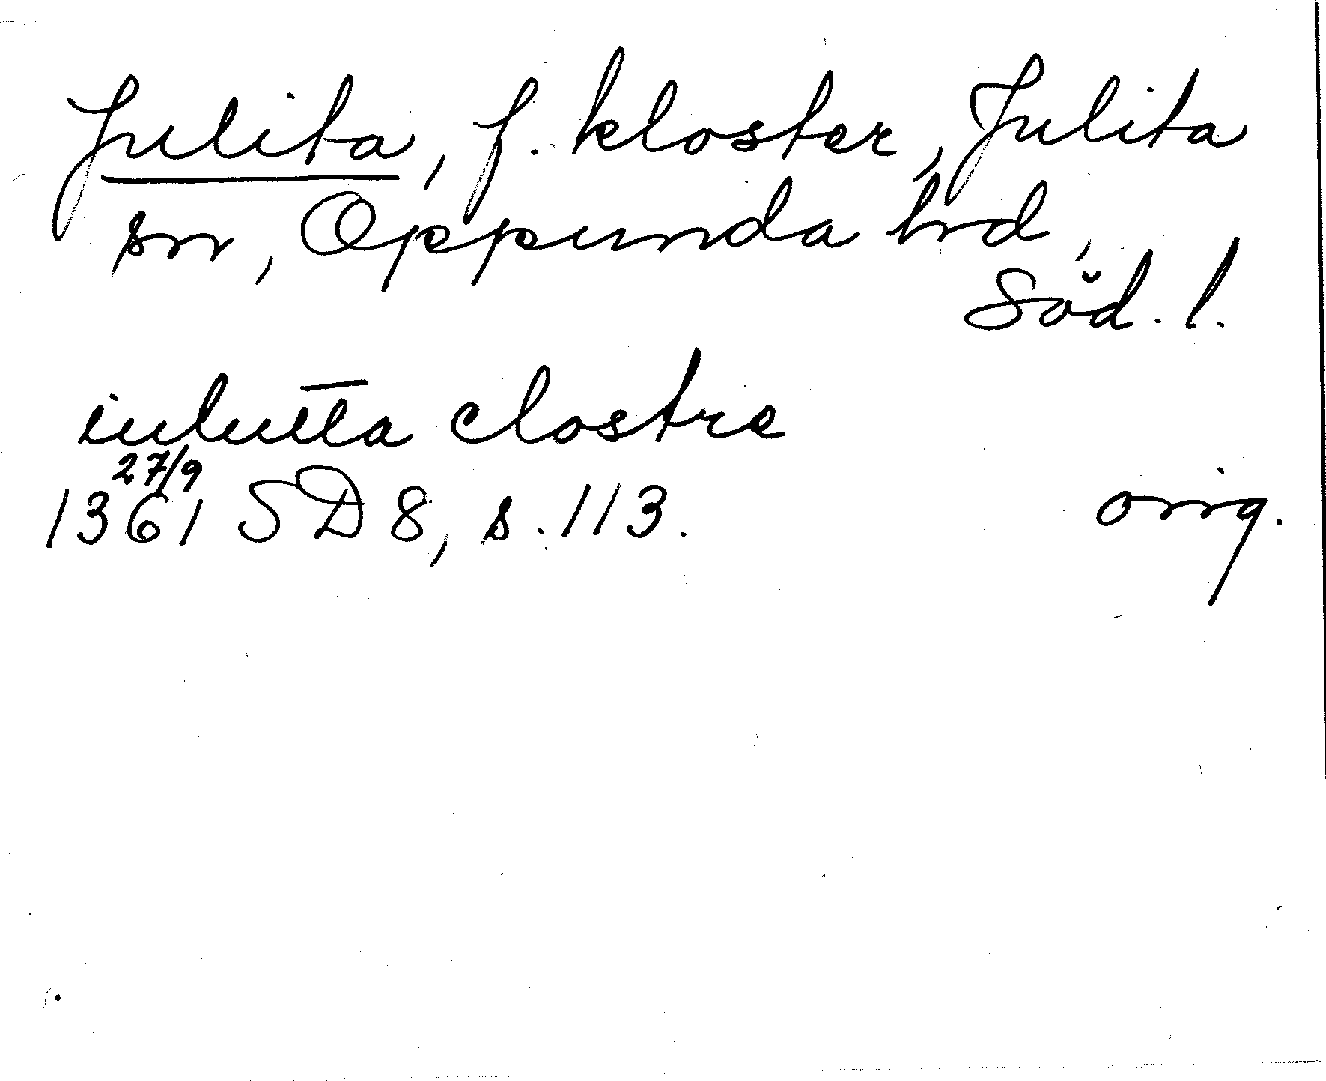 Julita, f. kloster, Julita
sn, Oppunda hrd,
Söd. l.
iulutta clostre
27/9
1361 SD 8, s. 113. orig.